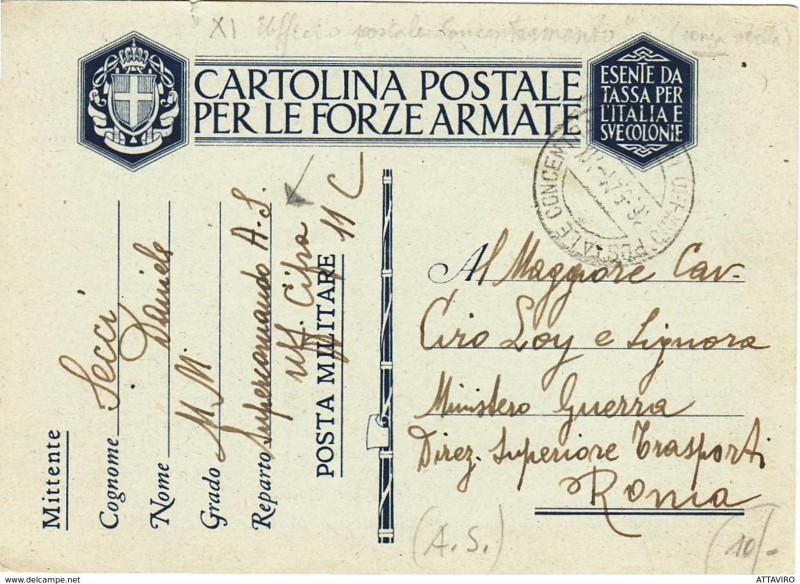 XI Ufficio postale Concentramento (senza stella)
CARTOLINA POSTALE
PER LE FORZE ARMATE
ESENTE DA
TASSA PER
L'ITALIA E
SVE COLONIE
UFFICIO POSTALE CONCENTR
Mittente
Cognome Secci
Nome Daniele
Grado M. M.
Reparto Supercomando A. S.
Uff. Cifra
POSTA MILITARE 11 C
Al Maggiore Cav.
Ciro Loy e Signora
Ministero Guerra
Direz. Superiore Trasporti
Roma
(A. S.)
(10/-
www.delcampe.net
ATTAVIRO